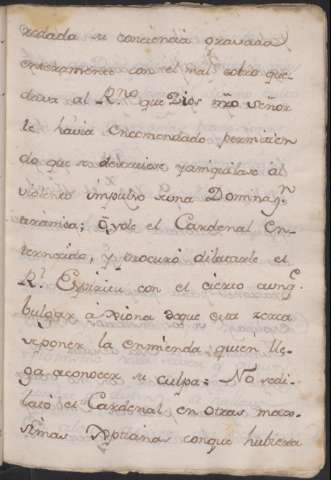 su conciencia gravada
enteramente con el mal cobro que
dava al R.no que Dios nro Señor
le havia encomendado permitien
do que se destruiese yaniquilase al
violento impulso de una Dominaz.n
tiranica; Oyole el Cardenal En-
ternecido, y procuró dilatarle el
R.l Espiritu con el cierto aunq.e
bulgar a de que esta zerca
de poner la enmienda quien lle-
ga aconocer su culpa: No se di-
lató el Cardenal en otras maxi-
mas conque hubiera